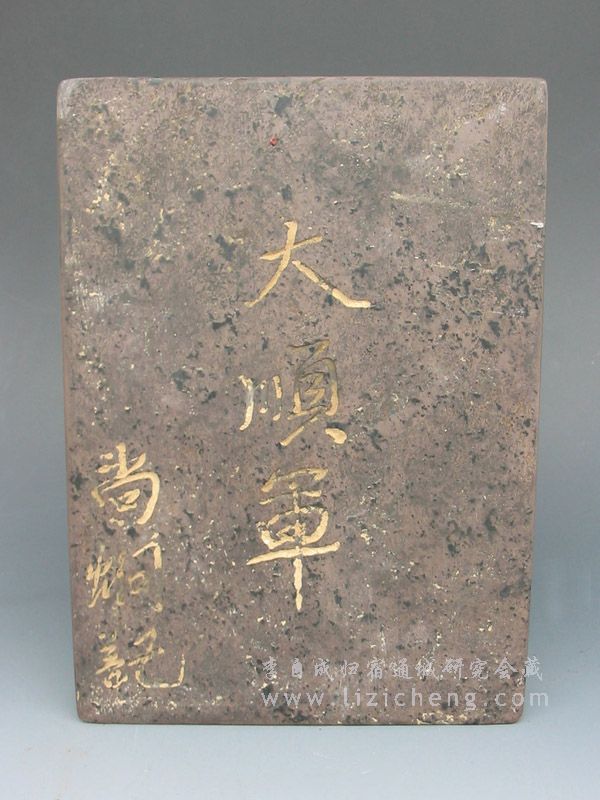 大順軍
尚炯記
李自成归宿通城研究会藏
www.lizicheng.com